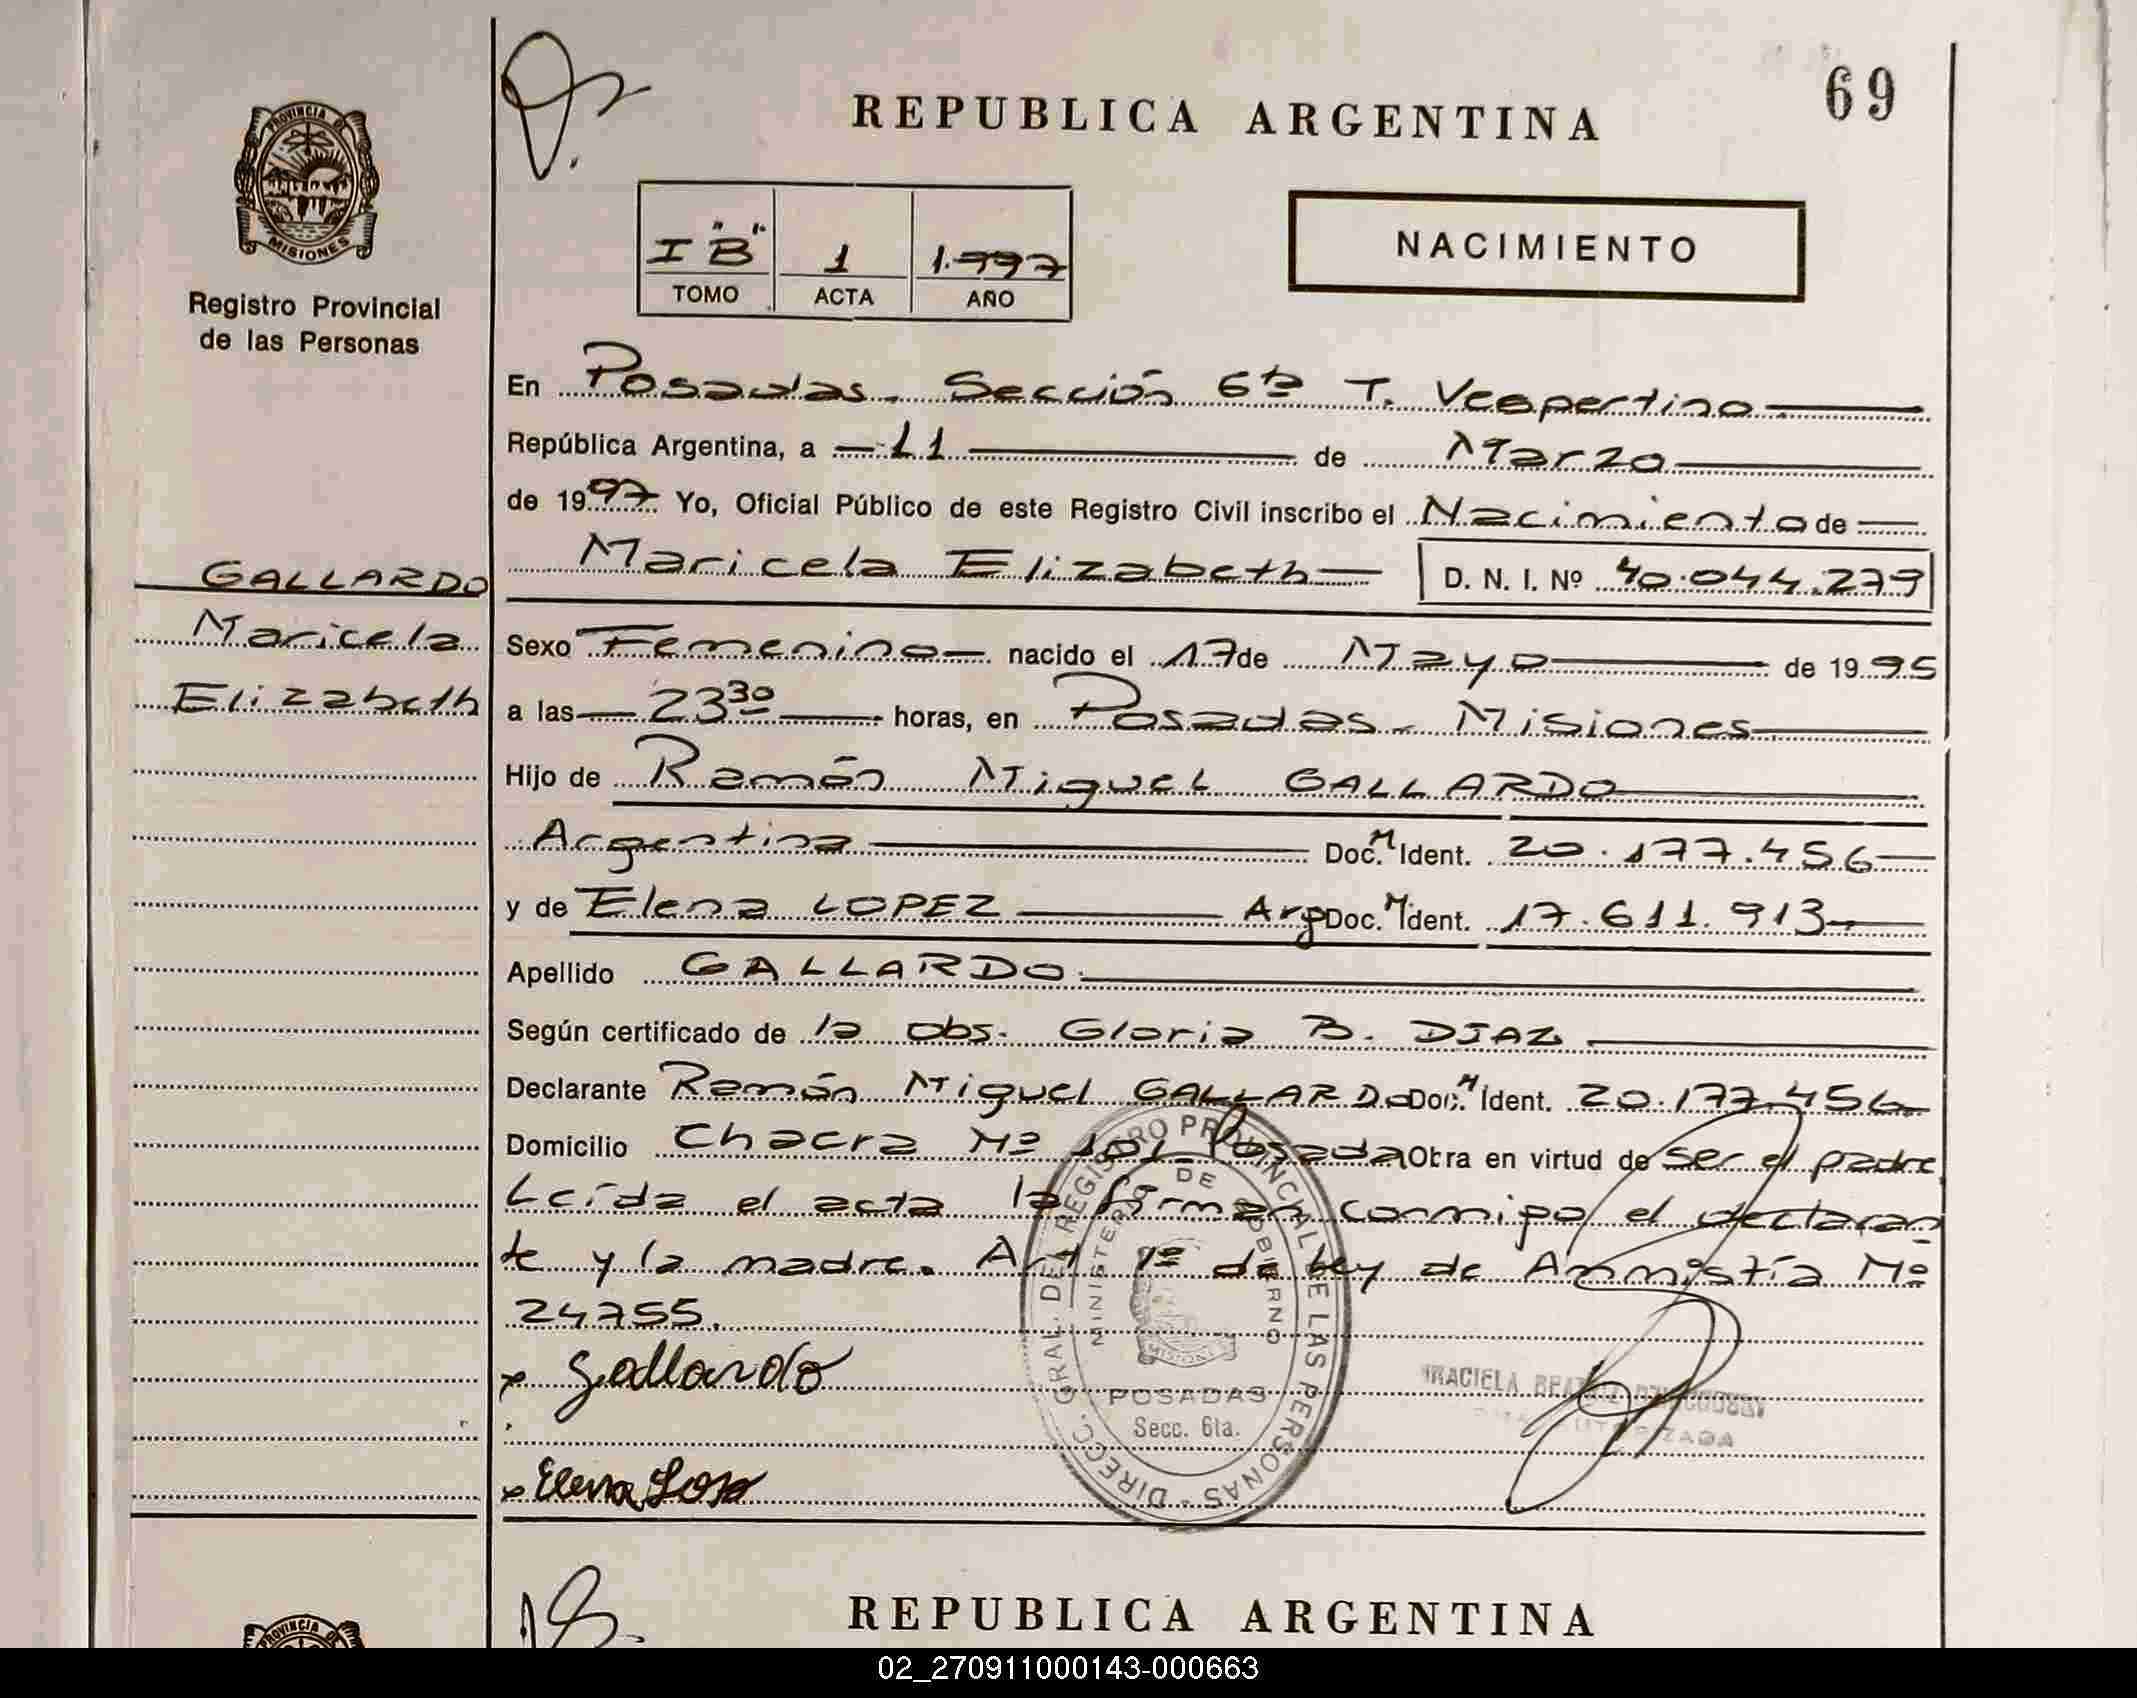 69
REPUBLICA ARGENTINA
PROVINCIA DE
MISIONES
Registro Provincial
de las Personas
I "B" 1 1.997
TOMO ACTA AÑO
NACIMIENTO
En Posadas. Sección 6ta T. Vespertino
República Argentina, a 11 de Marzo
de 1997 Yo, Oficial Público de este Registro Civil inscribo el Nacimiento de
GALLARDO
Maricela
Elizabeth
Maricela Elizabeth D. N. I. Nº 40.044.279
Sexo Femenino nacido el 17 de Mayo de 1995
a las 23 30 horas, en Posadas - Misiones
Hijo de Ramón Miguel GALLARDO
Argentina Doc. M Ident. 20.177.456
y de Elena LOPEZ Arg Doc. M Ident. 17.611.913
Apellido GALLARDO
Según certificado de la Obs. Gloria B. DIAZ
Declarante Ramón Miguel GALLARDO Doc. M Ident. 20.177.456
Domicilio Chacra Nº 101 Posada Obra en virtud de ser el padre
Leída el acta la firman conmigo el declaran
te y la madre. Art 1º de Ley de Amnistía Nº
24755.
x Gallardo
x Elena
DIRECC. GRAL. DEL REGISTRO PROVINCIAL DE LAS PERSONAS
MINISTERIO DE GOBIERNO
MISIONES
POSADAS
Secc. 6ta.
GRACIELA BEATRIZ
AUTORIZADA
REPUBLICA ARGENTINA
PROVINCIA DE
02_270911000143-000663